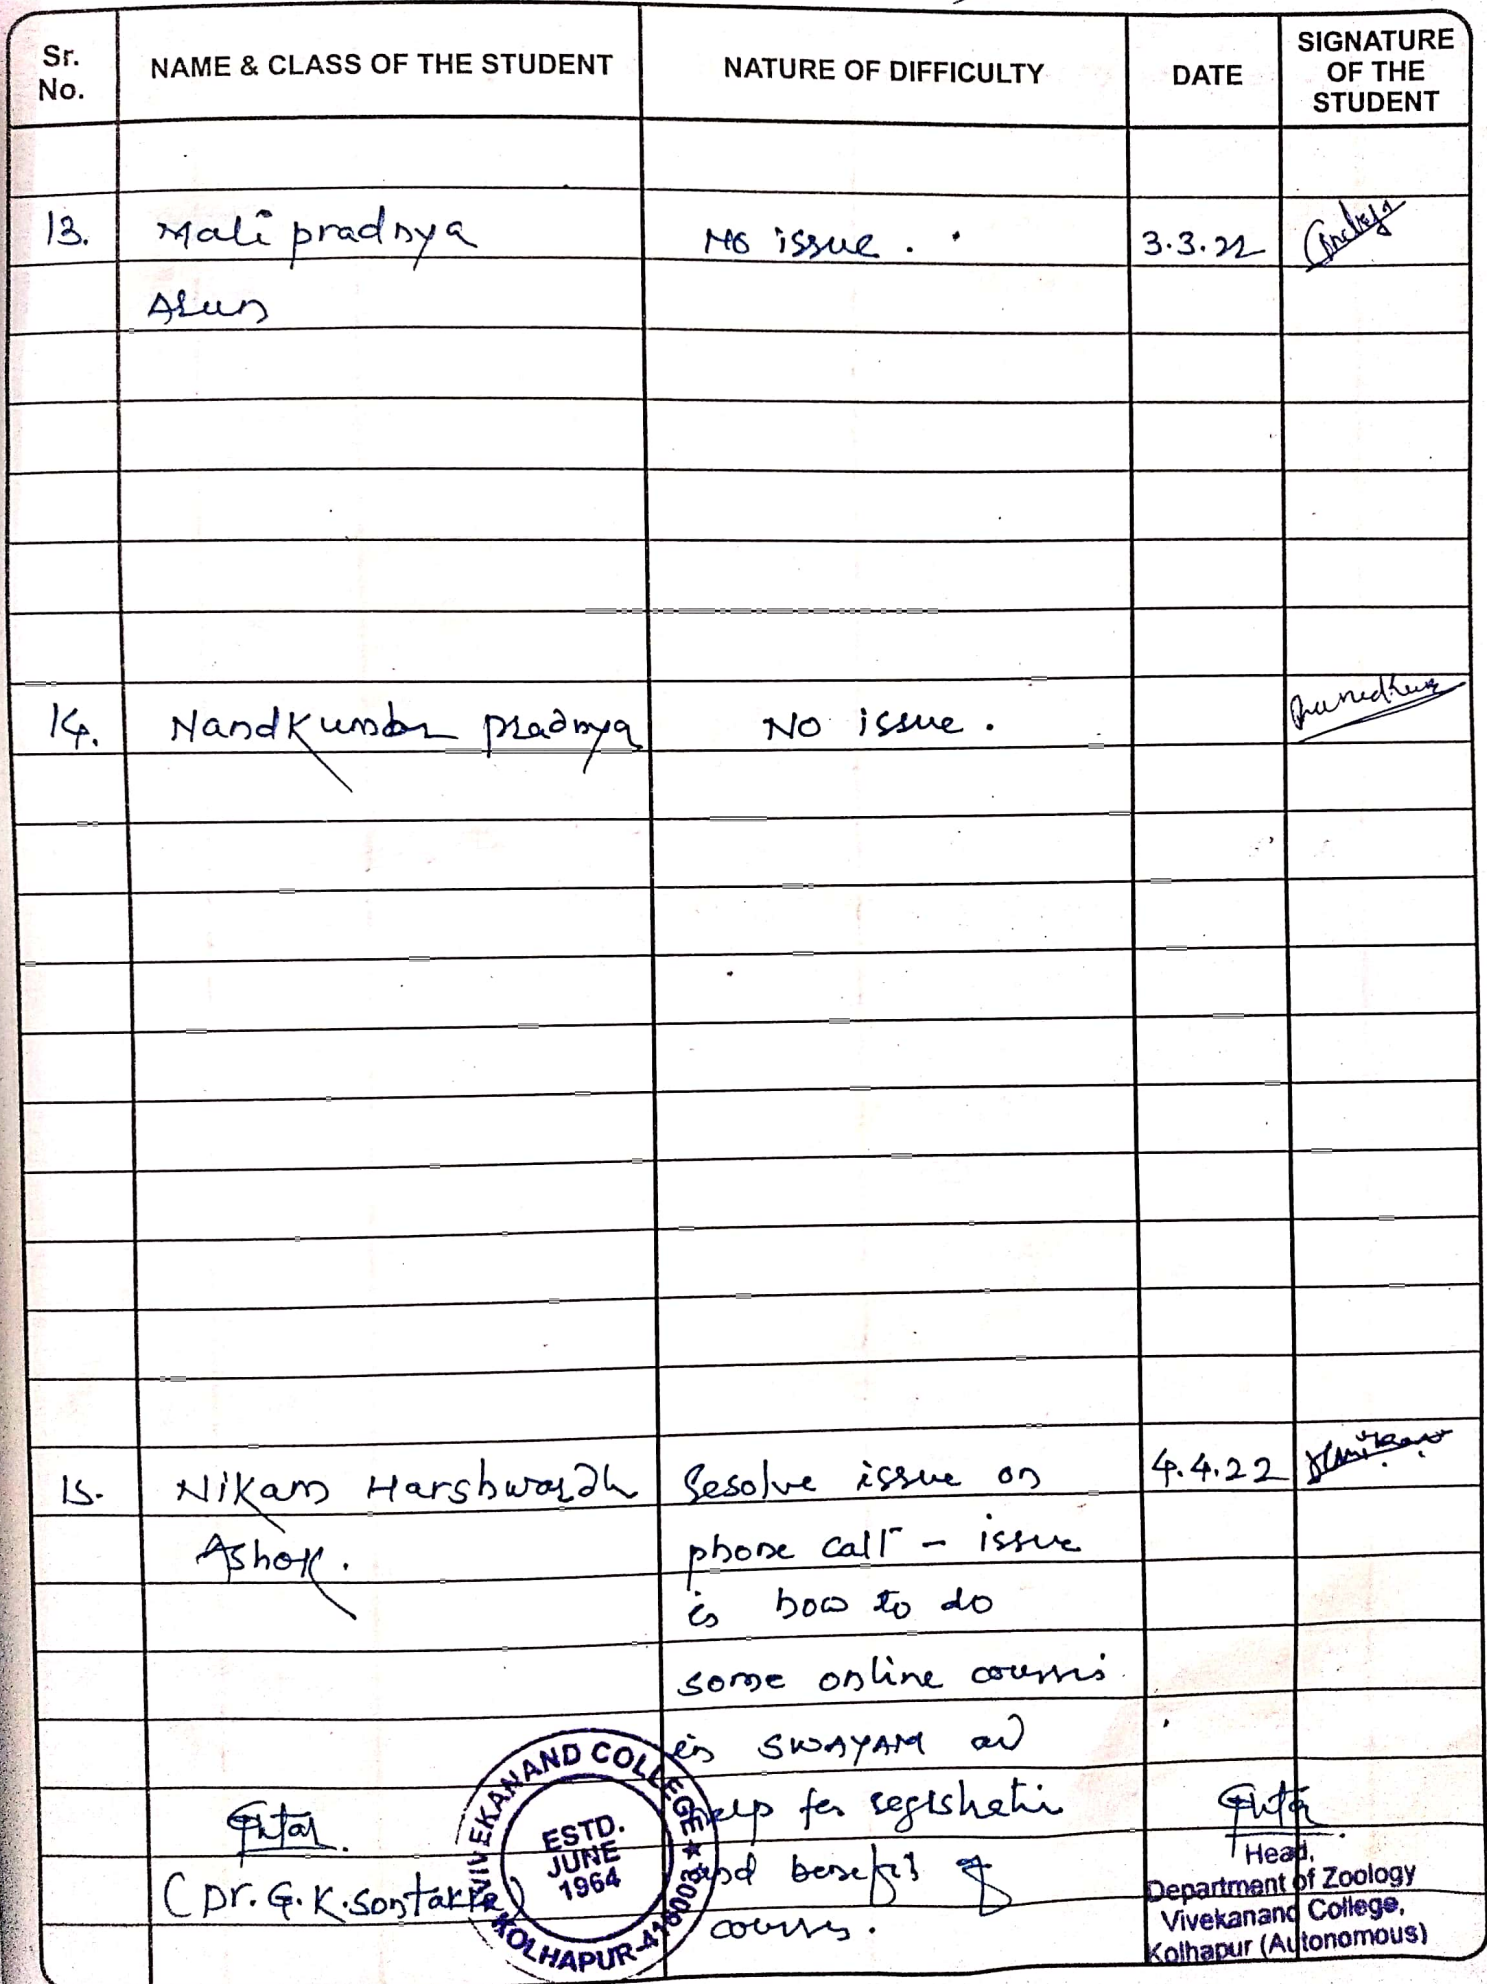 Sr. No.
NAME & CLASS OF THE STUDENT
NATURE OF DIFFICULTY
DATE
SIGNATURE OF THE STUDENT
13. Mali pradnya No issue. 3.3.22
Arun
14. Nandkumar pradnya No issue.
15. Nikam Harshwardh Resolve issue on 4.4.22
Ashok. phone call - issue
is how to do
some online courses
in SWAYAM and
help for registratin
and benefit of
courses.
(Dr. G. K. Sontakke)
VIVEKANAND COLLEGE ★ KOLHAPUR-416003
ESTD.
JUNE
1964
Head,
Department of Zoology
Vivekanand College,
Kolhapur (Autonomous)